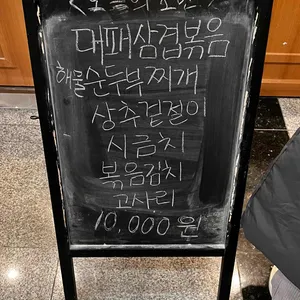 <오늘의 
대패삼겹볶음
해물순두부찌개
상추겉절이
시금치
볶음김치
고사리
10,000원